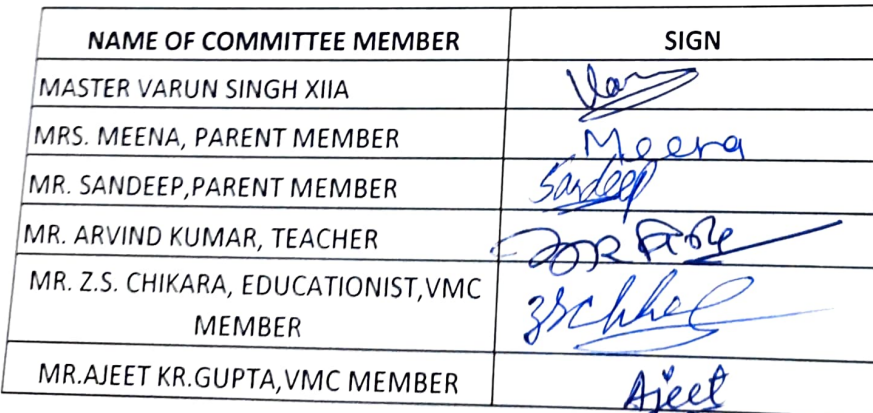 NAME OF COMMITTEE MEMBER SIGN
MASTER VARUN SINGH XIIA
MRS. MEENA, PARENT MEMBER Meena
MR. SANDEEP,PARENT MEMBER Sandeep
MR. ARVIND KUMAR, TEACHER
MR. Z.S. CHIKARA, EDUCATIONIST,VMC
MEMBER
MR.AJEET KR.GUPTA,VMC MEMBER Ajeet